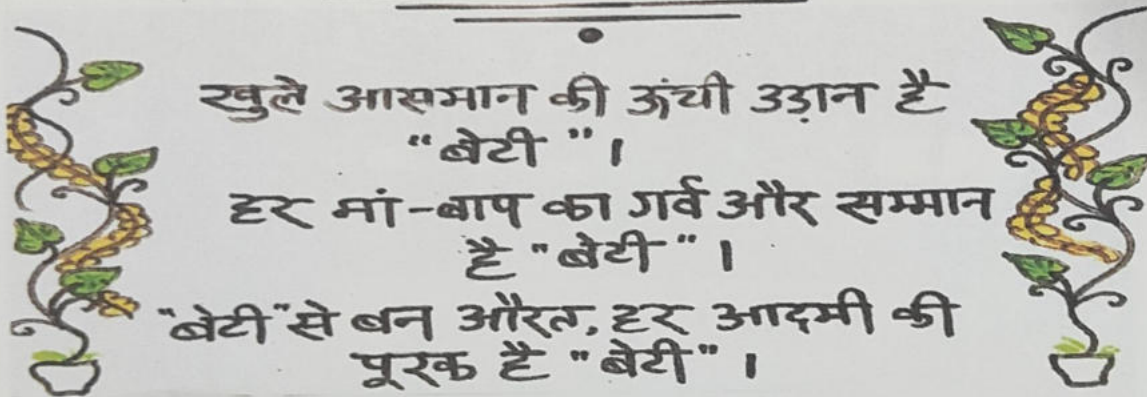 खुले आसमान की ऊंची उड़ान है
"बेटी"।
हर मां-बाप का गर्व और सम्मान
है "बेटी"।
"बेटी" से बन औरत, हर आदमी की
पूरक है "बेटी"।